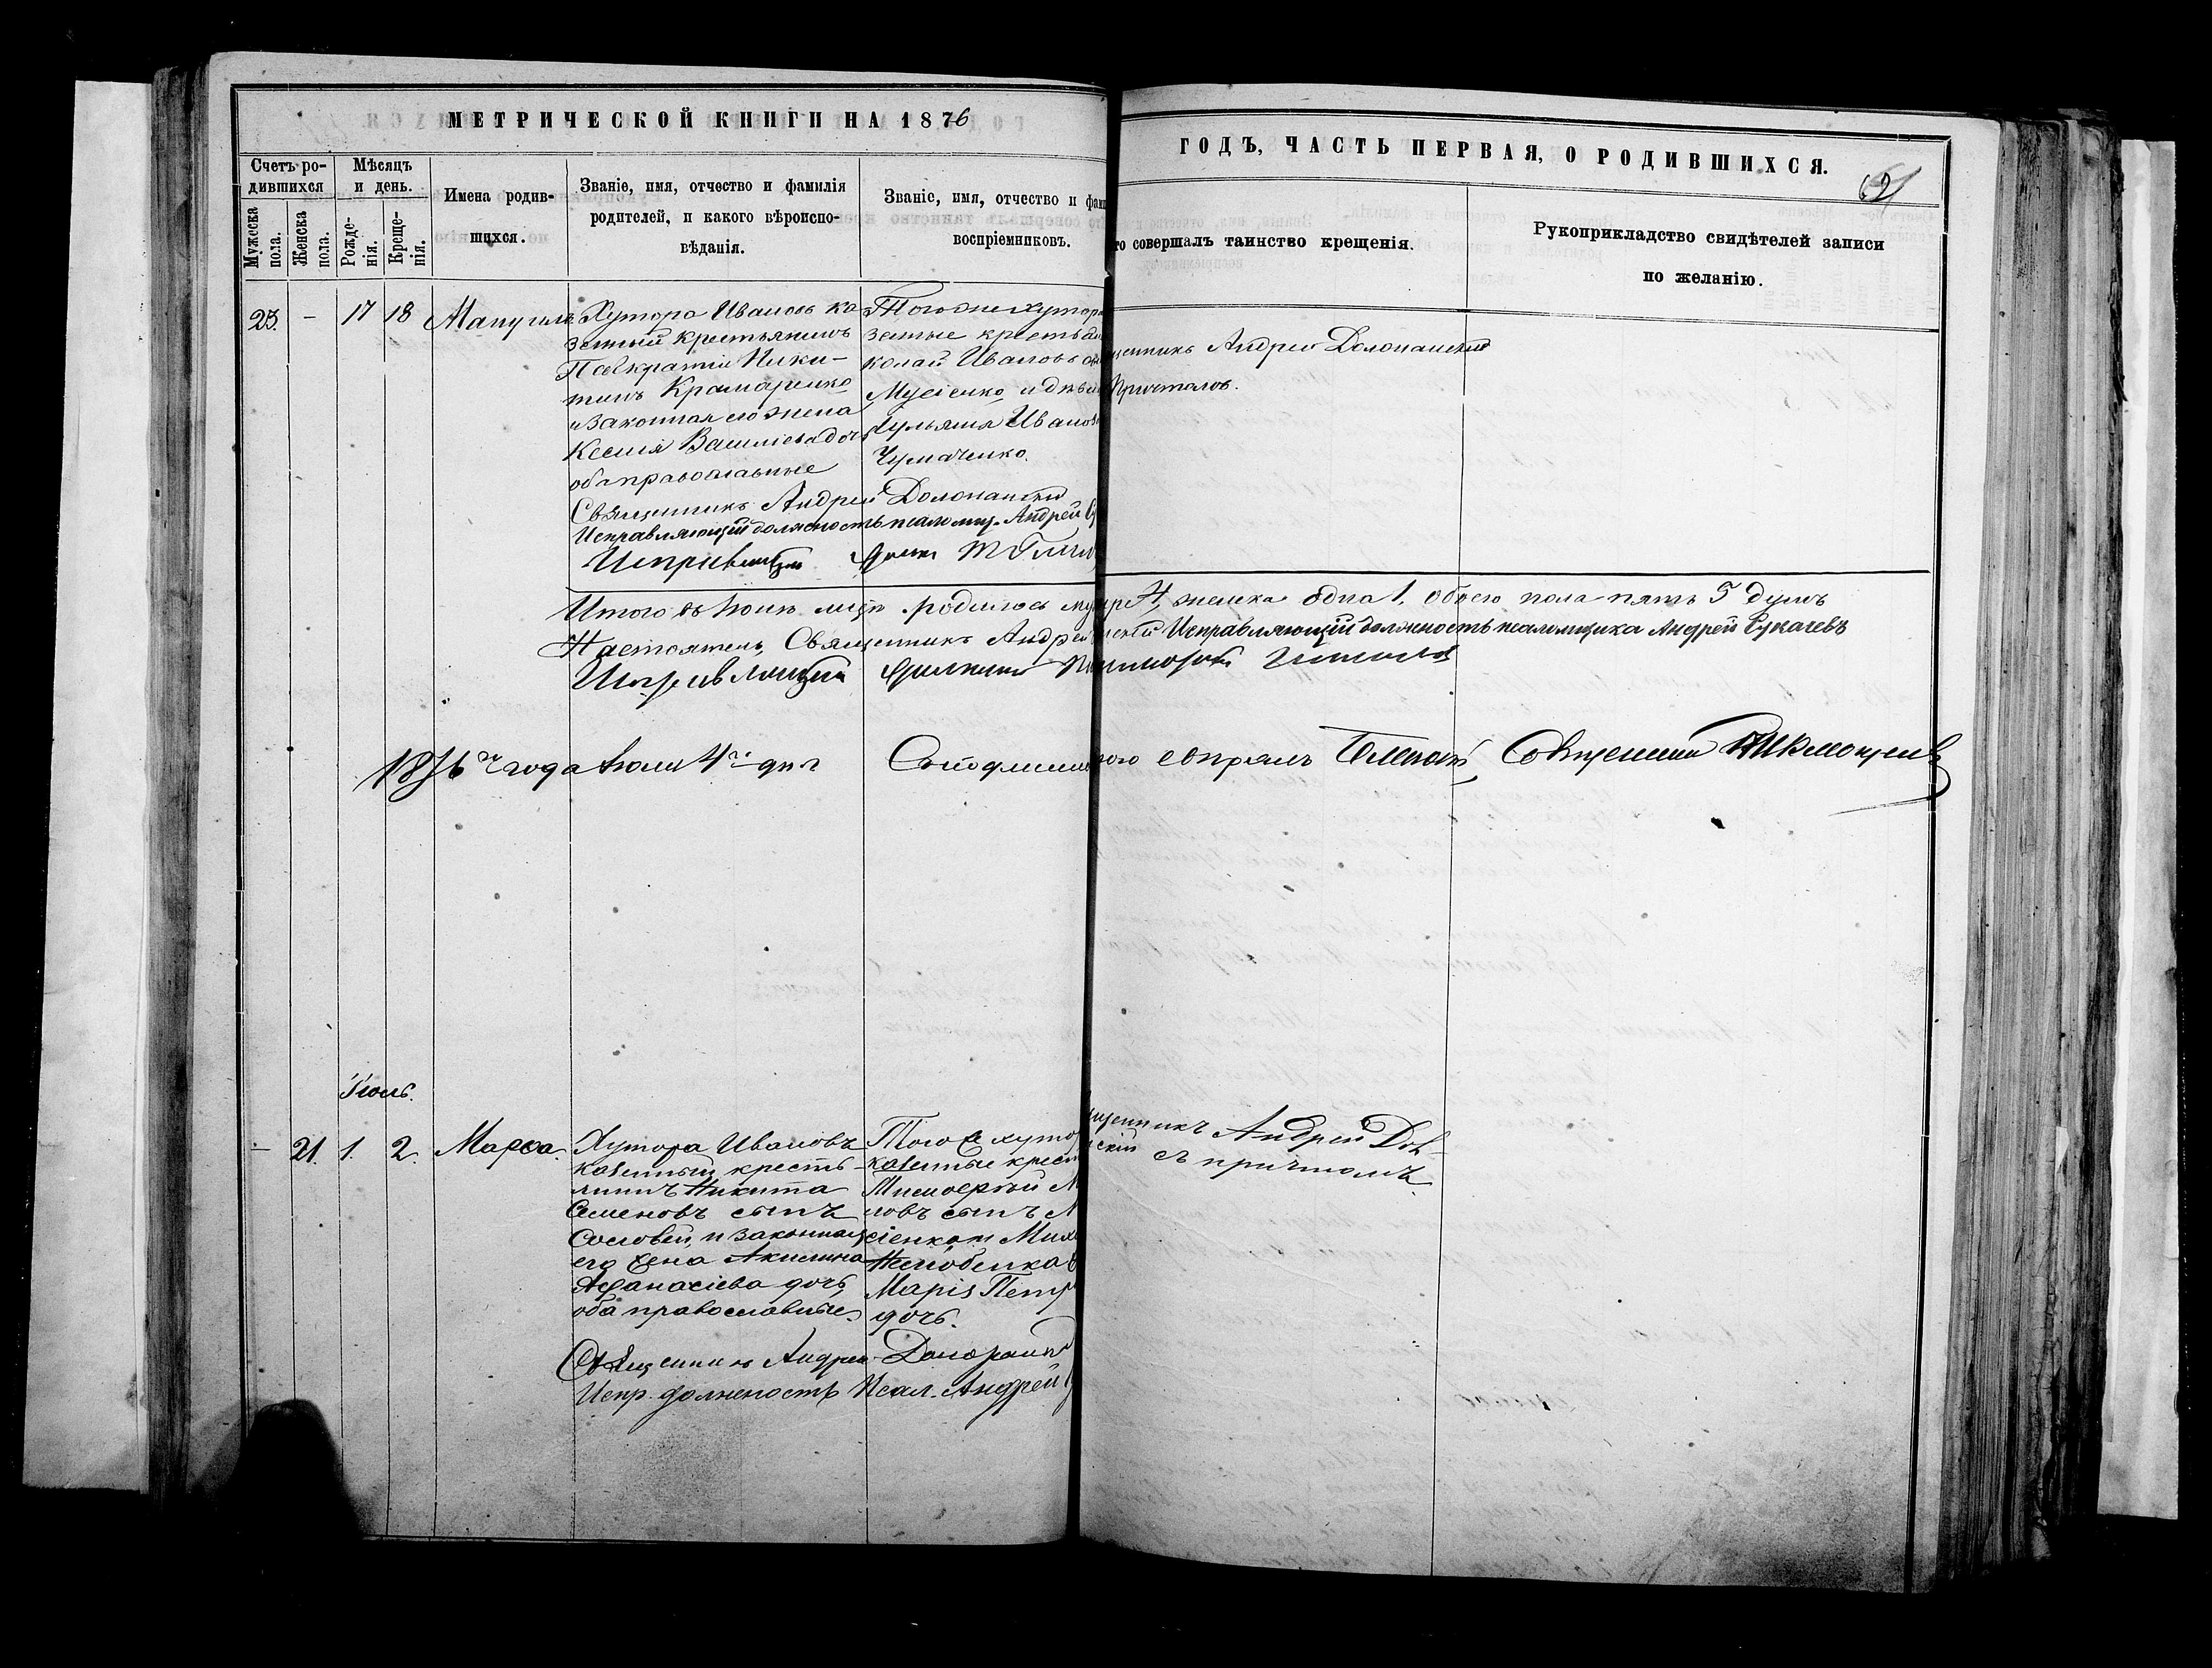 МЕТРИЧЕСКОЙ КНИГИ НА 1876
ГОДЪ, ЧАСТЬ ПЕРВАЯ, О РОДИВШИХСЯ.
Счетъ ро-
дившихся
Мужеска
пола.
Женска
пола.
Мѣсяцъ
и день.
Рожде-
нія.
Креще-
нія.
Имена родив-
шихся.
Званіе, имя, отчество и фамилія
родителей, и какого вѣроиспо-
вѣданія.
Званіе, имя, отчество и фам
воспріемниковъ.
то совершалъ таинство крещенія.
Рукоприкладство свидѣтелей записи
по желанію.
23. – 17 18 Мануилъ
Хутора Иванова ка
зенный крестьянинъ
Панкратій Ники-
тинъ Крамаренко
и законная его жена
Ксенія Васильева дочь
оба православные
Тогоже хутора
зенные крестьян
колай Ивановъ
Мусіенко и дѣви
Ульяна Иванов
Чумаченко.
щенникъ Андрей
Причтомъ.
Священникъ Андрей
Исправляющій должность псаломщ. Андрей
Итого въ Іюнѣ мцѣ родилось муж 4, женска одна 1, обоего пола пять 5 душъ
Настоятель, Священникъ Андрей Исправляющій должность псаломщика Андрей Сукачевъ
1876 года Іюля 4 дня
Іюль.
– 21. 1. 2. Марѳа.
Хутора Ивановъ
казенный кресть-
янинъ Никита
Семеновъ сынъ
Соловей, и законная
его жена Акилина
Афанасіева дочь,
оба православные.
Того же хуто
казенные крест
Тимоѳей М
новъ сынъ М
сіенко и Мих
Марія Петр
дочь.
щенникъ Андрей Дол-
скій съ причтомъ.
Священникъ Андрей
Испр. должность Псал. Андрей